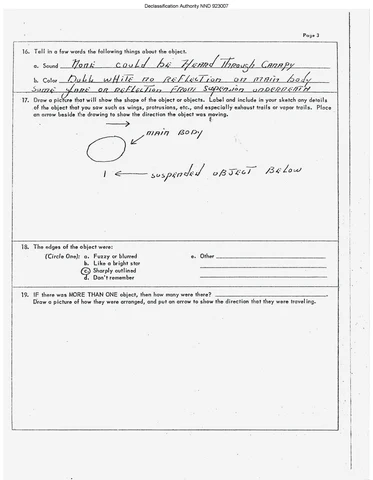 Declassification Authority NND 923007
Page 3
16. Tell in a few words the following things about the object.
a. Sound None could be Heard Through Canapy
b. Color Dull white no reflection on main body
some
or reflection from suspension underneath
17. Draw a picture that will show the shape of the object or objects. Label and include in your sketch any details
of the object that you saw such as wings, protrusions, etc., and especially exhaust trails or vapor trails. Place
an arrow beside the drawing to show the direction the object was moving.
main Body
suspended object Below
18. The edges of the object were:
(Circle One): a. Fuzzy or blurred
b. Like a bright star
c. Sharply outlined
d. Don't remember
e. Other
19. IF there was MORE THAN ONE object, then how many were there?
Draw a picture of how they were arranged, and put an arrow to show the direction that they were traveling.